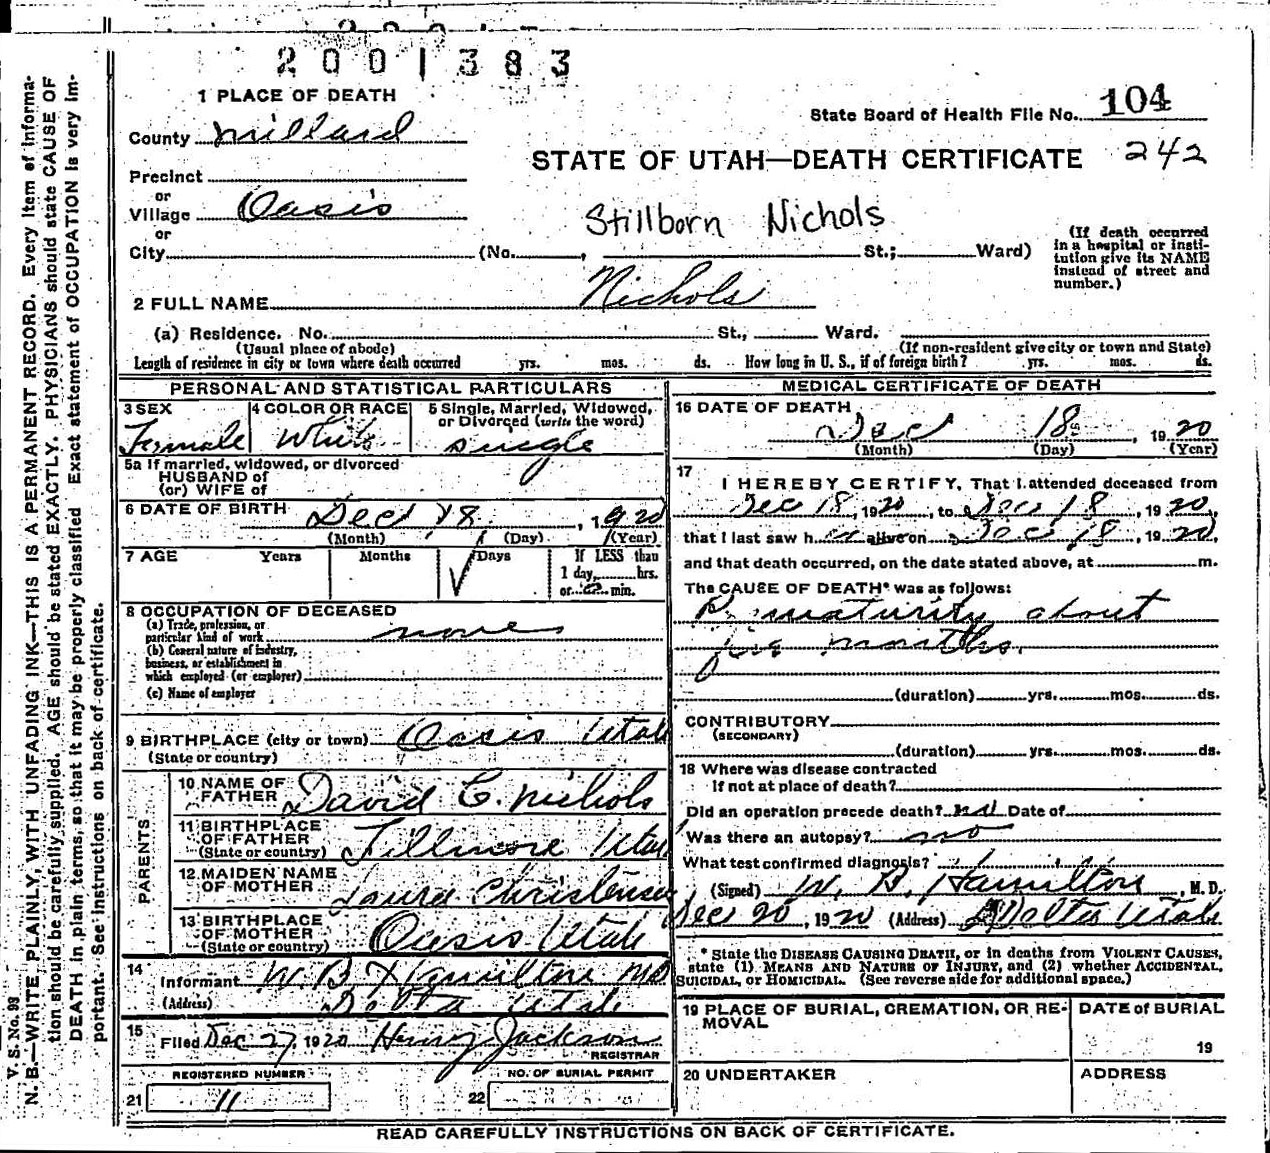 2001383
1 PLACE OF DEATH
State Board of Health File No. 104
County Millard
STATE OF UTAH—DEATH CERTIFICATE 242
Precinct
or
Village Oasis
Stillborn Nichols
or
City (No. , St.; Ward)
(If death occurred in a hospital or insti-
tution give its NAME
instead of street and
number.)
2 FULL NAME Nichols
(a) Residence. No. St., Ward.
(Usual place of abode) (If non-resident give city or town and State)
Length of residence in city or town where death occurred yrs. mos. ds. How long in U. S., if of foreign birth? yrs. mos. ds.
PERSONAL AND STATISTICAL PARTICULARS
3 SEX 4 COLOR OR RACE 5 Single, Married, Widowed,
or Divorced (write the word)
Female White single
5a If married, widowed, or divorced
HUSBAND of
(or) WIFE of
6 DATE OF BIRTH Dec 18, 1920
(Month) (Day) (Year)
7 AGE Years Months Days If LESS than
1 day, hrs.
or min.
8 OCCUPATION OF DECEASED
(a) Trade, profession, or
particular kind of work none
(b) General nature of industry,
business, or establishment in
which employed (or employer)
(c) Name of employer
9 BIRTHPLACE (city or town) Oasis Utah
(State or country)
PARENTS
10 NAME OF
FATHER David C. Nichols
11 BIRTHPLACE
OF FATHER
(State or country) Fillmore Utah
12 MAIDEN NAME
OF MOTHER Laura Christensen
13 BIRTHPLACE
OF MOTHER
(State or country) Oasis Utah
14
Informant W. B. Hamilton MD
(Address) Delta Utah
15
Filed Dec 27, 1920 Henry Jackson
REGISTRAR
REGISTERED NUMBER NO. OF BURIAL PERMIT
21 11 22
MEDICAL CERTIFICATE OF DEATH
16 DATE OF DEATH
Dec 18, 1920
(Month) (Day) (Year)
17
I HEREBY CERTIFY, That I attended deceased from
Dec 18, 1920, to Dec 18, 1920,
that I last saw h er alive on Dec 18, 1920,
and that death occurred, on the date stated above, at m.
The CAUSE OF DEATH* was as follows:
Prematurity about
five months.
(duration) yrs. mos. ds.
CONTRIBUTORY
(SECONDARY)
(duration) yrs. mos. ds.
18 Where was disease contracted
If not at place of death?
Did an operation precede death? no Date of
Was there an autopsy? no
What test confirmed diagnosis?
(Signed) W. B. Hamilton, M.D.
Dec 20, 1920 (Address) Delta Utah
* State the DISEASE CAUSING DEATH, or in deaths from VIOLENT CAUSES,
state (1) MEANS AND NATURE OF INJURY, and (2) whether ACCIDENTAL,
SUICIDAL, or HOMICIDAL. (See reverse side for additional space.)
19 PLACE OF BURIAL, CREMATION, OR RE-
MOVAL
DATE of BURIAL
19
20 UNDERTAKER ADDRESS
READ CAREFULLY INSTRUCTIONS ON BACK OF CERTIFICATE.
V. S. No. 93
N. B.—WRITE PLAINLY, WITH UNFADING INK—THIS IS A PERMANENT RECORD. Every item of informa-
tion should be carefully supplied. AGE should be stated EXACTLY. PHYSICIANS should state CAUSE OF
DEATH in plain terms, so that it may be properly classified. Exact statement of OCCUPATION is very im-
portant. See instructions on back of certificate.